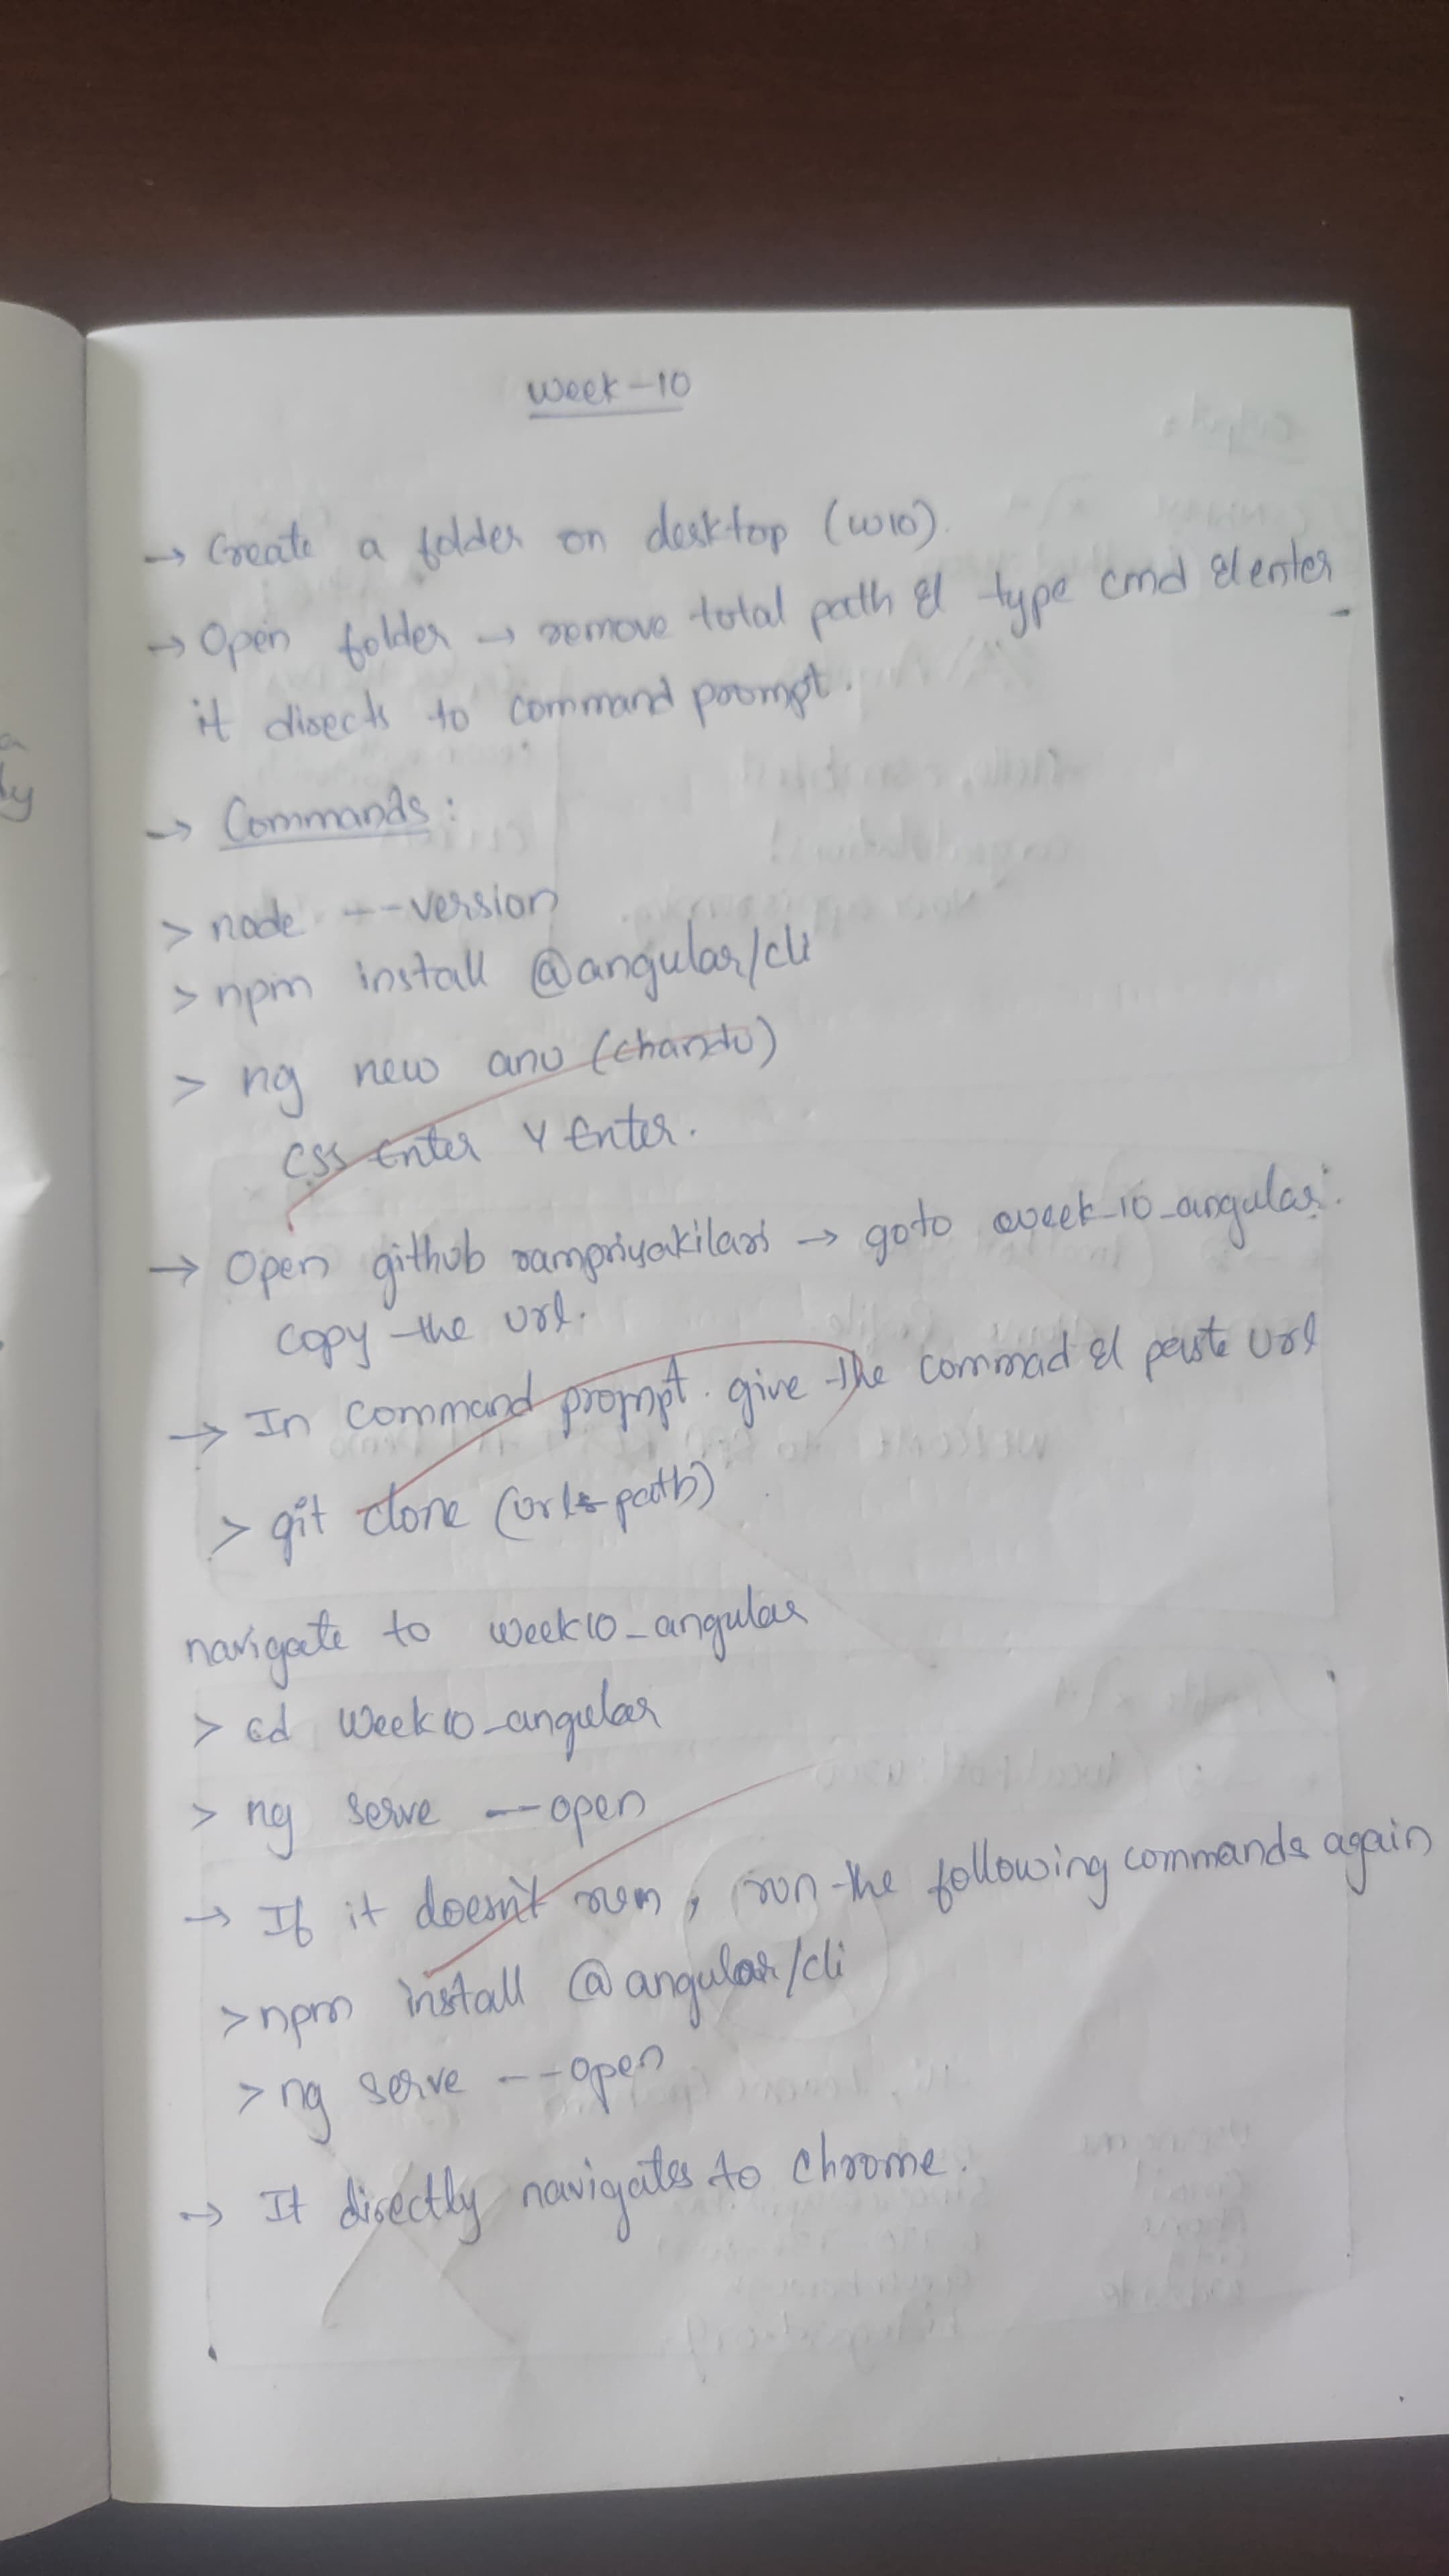 Week-10
→ Create a folder on desktop (W10).
→ Open folder → remove total path & type cmd & enter
it directs to command prompt.
→ Commands:
> node --version
> npm install @angular/cli
> ng new anu (chandu)
CSS Enter Y Enter.
→ Open github rampriyakilari → goto week-10-angular.
Copy the url.
→ In command prompt. give the commad & paste url
> git clone (url path)
navigate to week10-angular
> cd Week10-angular
> ng serve --open
→ If it doesn't run, run the following commands again
> npm install @angular/cli
> ng serve --open
→ It directly navigates to chrome.